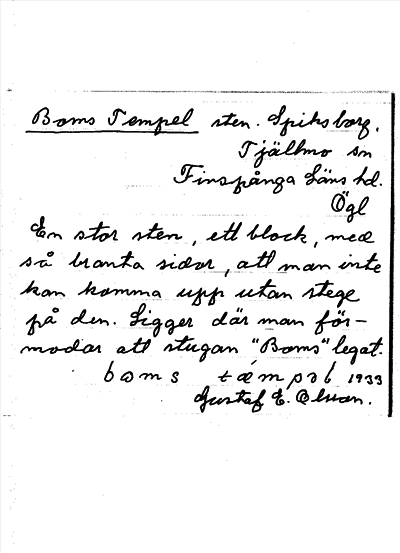 Boms Tempel sten. Spiksborg.
Tjällmo sn
Finspånga Läns hd.
Ögl
En stor sten, ett block, med
så branta sidor, att man inte
kan komma upp utan stege
på den. Ligger där man för-
modar att stugan "Boms" legat.
boms tæmpəl 1933
Gustaf E. Olsson.